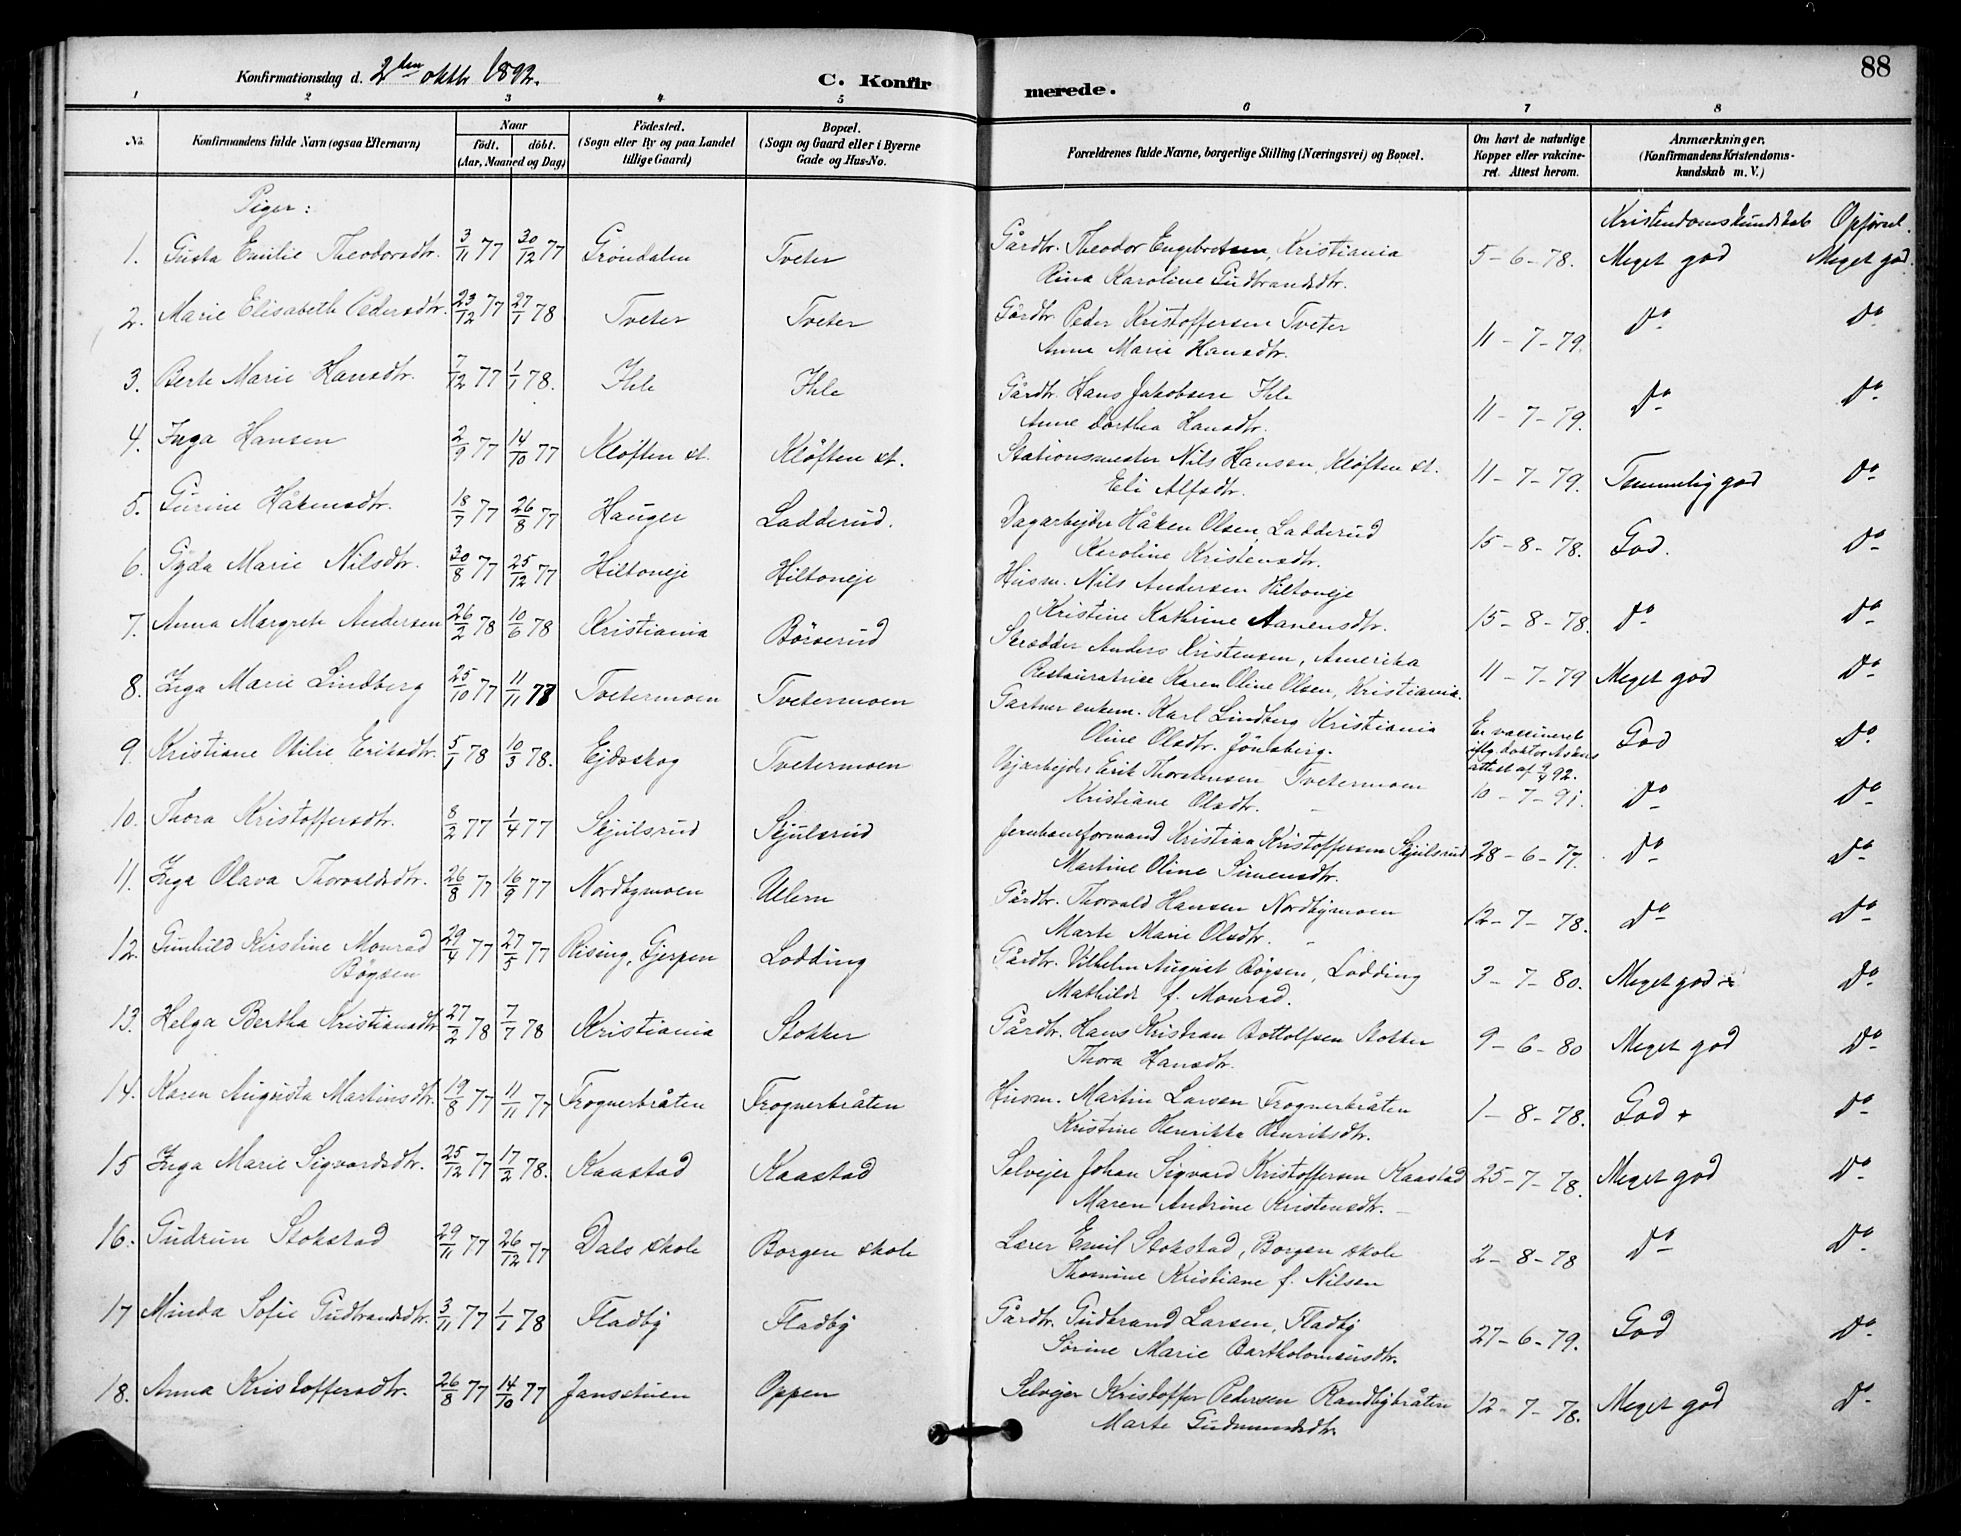 88
Konfirmationsdag d. 2den oktbr 1892.
C. Konfirmerede.
1 2 3 4 5 6 7 8
No. Konfirmandens fulde Navn (ogsaa Efternavn) Naar født. døbt. (Aar, Maaned og Dag) Fødested. (Sogn eller By og paa Landet tillige Gaard) Bopæl. (Sogn og Gaard eller i Byerne Gade og Hus-No. Forældrenes fulde Navne, borgerlige Stilling (Næringsvei) og Bopæl. Om havt de naturlige Kopper eller vakcineret. Attest herom. Anmærkninger. (Konfirmandens Kristendomskundskab m. V.)
Piger:
Kristendomskundskab Opførsel.
1. Gusta Emilie Theodorsdtr. 3/11 77 30/12 77 Grøndalen Tveter Gårdbr. Theodor Engebretsen, Kristiania 5-6-78. Meget god Meget god.
Rina Karoline Gudbrandsdtr.
2. Marie Elisabeth Pedersdtr. 23/12 77 27/1 78 Tveter Tveter Gårdbr. Peder Kristoffersen Tveter 11-7-79. Do Do
Anne Marie Hansdtr.
3. Berte Marie Hansdtr. 7/12 77 1/1 78. Ihle Ihle Gårdbr. Hans Jakobsen Ihle 11-7-79. Do Do
Anne Dorthea Hansdtr.
4. Inga Hansen 2/9 77 14/10 77 Kløften st. Kløften st. Stationsmester Nils Hansen, Kløften st. 11-7-79. Temmelig god Do
Eli Alfsdtr.
5. Gurine Håkensdtr. 18/7 77 26/8 77 Hauger Ladderud. Dagarbejder Håken Olsen, Ladderud 15-8-78. God. Do
Karoline Kristensdtr.
6. Gyda Marie Nilsdtr. 30/8 77 25/12 77 Hiltoneje Hiltoneje Husm. Nils Andersen Hiltoneje 15-8-78. Do Do
Kristine Kathrine Aanensdtr.
7. Anna Margrete Andersen 26/2 78 10/6 78 Kristiania Børserud Skrædder Anders Kristensen, Amerika 11-7-79 Meget god Do
Restauratrice Karen Oline Olsen, Kristiania.
8. Inga Marie Lindberg 25/10 77 11/11 77 Tvetermoen Tvetermoen Gartner enkem. Karl Lindberg Kristiania Er vaccineret iflg. doktor attest af 9/4 92. God Do
Oline Olsdtr. Jønsberg.
9. Kristiane Otilie Eriksdtr. 5/1 78 10/3 78. Ejdsskog Tvetermoen Vejarbejder Erik Thorstensen Tvetermoen 10-7-91. Do Do
Kristiane Olsdtr.
10. Thora Kristoffersdtr. 8/2 77 1/4 77 Skjulsrud Skjulsrud Jernbaneformand Kristian Kristoffersen Skjulsrud 28-6-77. Do Do
Martine Oline Simensdtr.
11. Inga Olava Thorvaldsdtr. 26/8 77 16/9 77 Nordbymoen Ulern Gårdbr. Thorvald Hansen Nordbymoen 12-7-78. Do Do
Marte Marie Olsdtr.
12. Gunhild Kirstine Monrad 29/4 77 27/5 77 Rising, Gjerpen Lodding Gårdbr. Vilhelm August Bøysen, Lodding 3-7-80. Meget god Do
Bøysen Mathilde f. Monrad.
13. Helga Bertha Kristiansdtr 27/2 78 7/7 78 Kristiania Stokker Gårdbr. Hans Kristian Bottolfsen Stokker 9-6-80 Meget god Do
Thora Hansdtr.
14. Karen Augusta Martinsdtr. 19/8 77 11/11 77 Frognerbråten Frognerbråten Husm. Martin Larsen Frognerbråten 1-8-78. God + Do
Kristine Henrikka Henriksdtr.
15 Inga Marie Sigvardsdtr. 25/12 77 17/2 78. Kaastad Kaastad Selvejer Johan Sigvard Kristoffersen Kaastad 25-7-78. Meget god Do
Maren Andrine Kristensdtr.
16. Gudrun Stokstad 29/11 77 26/12 77 Dals skole Borgen skole Lærer Emil Stokstad, Borgen skole 2-8-78 Do Do
Thomine Kristiane f. Nilsen
17 Minda Sofie Gudbrandsdtr. 3/11 77 1/1 78 Fladby Fladby Gårdbr. Gudbrand Larsen, Fladby 27-6-79. God Do
Sørine Marie Bartholomæusdtr.
18. Anna Kristoffersdtr. 26/8 77 14/10 77 Jansstuen Oppen Selvejer Kristoffer Pedersen Randbybråten 12-7-78. Meget god Do
Marte Gudmundsdtr.